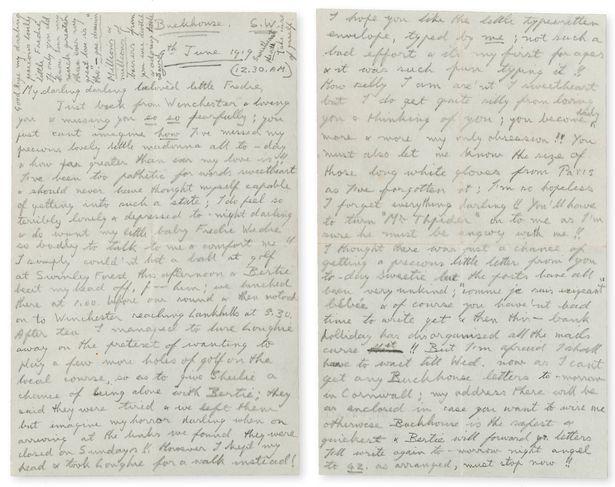 Buckhouse S.W.
th June 1919
(12.30. A.M.)
My darling darling beloved little Fredie,
Just back from Winchester & loving
you & missing you so so fearfully; you
just can't imagine how I've missed my
precious lovely little madonna all to-day
& how far greater than ever my love is!!
I've been too pathetic for words sweetheart
& should never have thought myself capable
of getting into such a state; I do feel so
terribly lonely & depressed to-night darling
& do want my little baby Fredie Wedie
so badly to talk to me & comfort me!!
I simply could'nt hit a ball at golf
at Swinley Forest this afternoon & Bertie
beat my head off, f— him; we lunched
there at 1.00. before our round & then motored
on to Winchester reaching Lankhills at 5.30.
After tea I managed to lure Loughie
away on the pretext of wanting to
play a few more holes of golf on the
local course, so as to give Sheilie a
chance of being alone with Bertie; they
said they were tired & we left them
but imagine my horror darling when on
arriving at the links we found they were
closed on Sundays!! However I kept my
head & took Loughie for a walk instead!
I hope you like the little typewritten
envelope, typed by me; not such a
bad effort & it's my first for ages
& it was such fun typing it!!
How silly I am are'nt I sweetheart
but I do get quite silly from loving
you & thinking of you; you become daily
more & more my only obsession!! You
must also let me know the size of
those long white gloves from Paris
as I've forgotten it; I'm so hopeless
I forget everything darling!! You'll have
to turn "Mr Thpider" on to me as I'm
sure he must be angwy with me!!
I thought there was just a chance of
getting a precious little letter from you
to-day sweetie but the posts have all
been very unkind,
& of course you have'nt had
time to write yet & then this — bank
holliday has disorganised all the mails
curse it!! But I'm afraid I shall
have to wait till Wed. now as I can't
get any Buckhouse letters to-morrow
in Cornwall; my address there will be
as enclosed in case you want to wire me
otherwise Buckhouse is the safest &
quickest & Bertie will forward yr letters
Will write again to-morrow night angel
to as arranged, must stop now!!